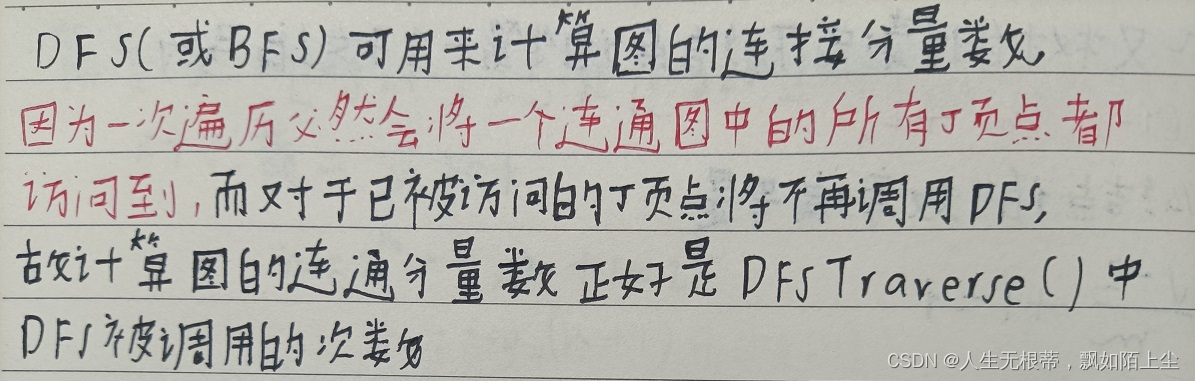 DFS(或BFS)可用来计算图的连接分量数,
因为一次遍历必然会将一个连通图中的所有顶点都
访问到,而对于已被访问的顶点将不再调用DFS,
故计算图的连通分量数正好是DFSTraverse()中
DFS被调用的次数
CSDN @人生无根蒂,飘如陌上尘